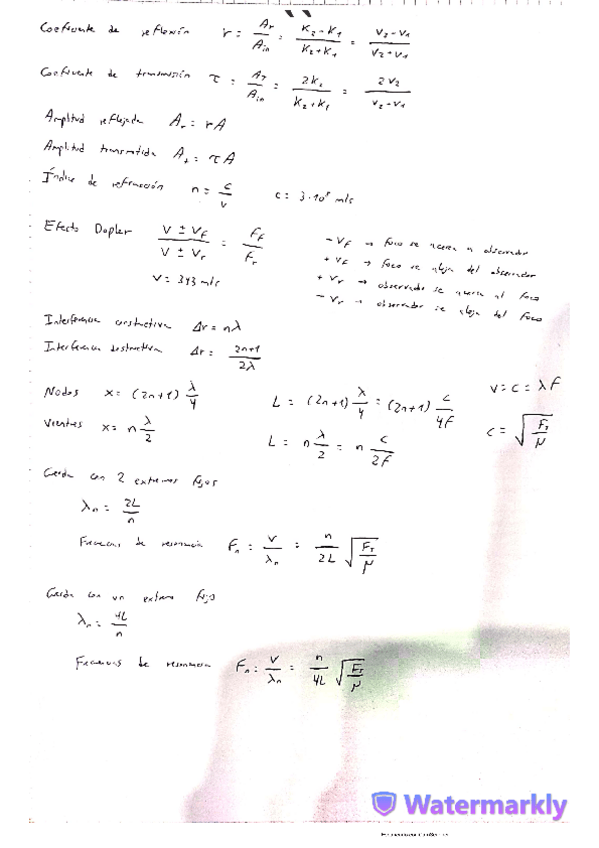 Coeficiente de reflexión r = Ar/Ain = K2-K1/K2+K1 = V2-V1/V2+V1
Coeficiente de transmisión τ = AT/Ain = 2K1/K2+K1 = 2V2/V2-V1
Amplitud reflejada Ar = rA
Amplitud transmitida At = τA
Índice de refracción n = c/v c = 3·10⁸ m/s
Efecto Dopler V ± VF/V ± Vr = FF/Fr
V = 343 m/s
- VF → foco se acerca a observador
+ VF → foco se aleja del observador
+ Vr → observador se acerca al foco
- Vr → observador se aleja del foco
Interferencia constructiva Δr = nλ
Interferencia destructiva Δr = 2n+1/2λ
Nodos x = (2n+1) λ/4 L = (2n+1) λ/4 = (2n+1) c/4F V = C = λF
Vientres x = n λ/2 L = n λ/2 = n c/2F c = √FT/μ
Cuerda con 2 extremos fijos
λn = 2L/n
Frecuencias de resonancia Fn = V/λn = n/2L √FT/μ
Cuerda con un extremo fijo
λn = 4L/n
Frecuencias de resonancia Fn = V/λn = n/4L √FT/μ
Watermarkly